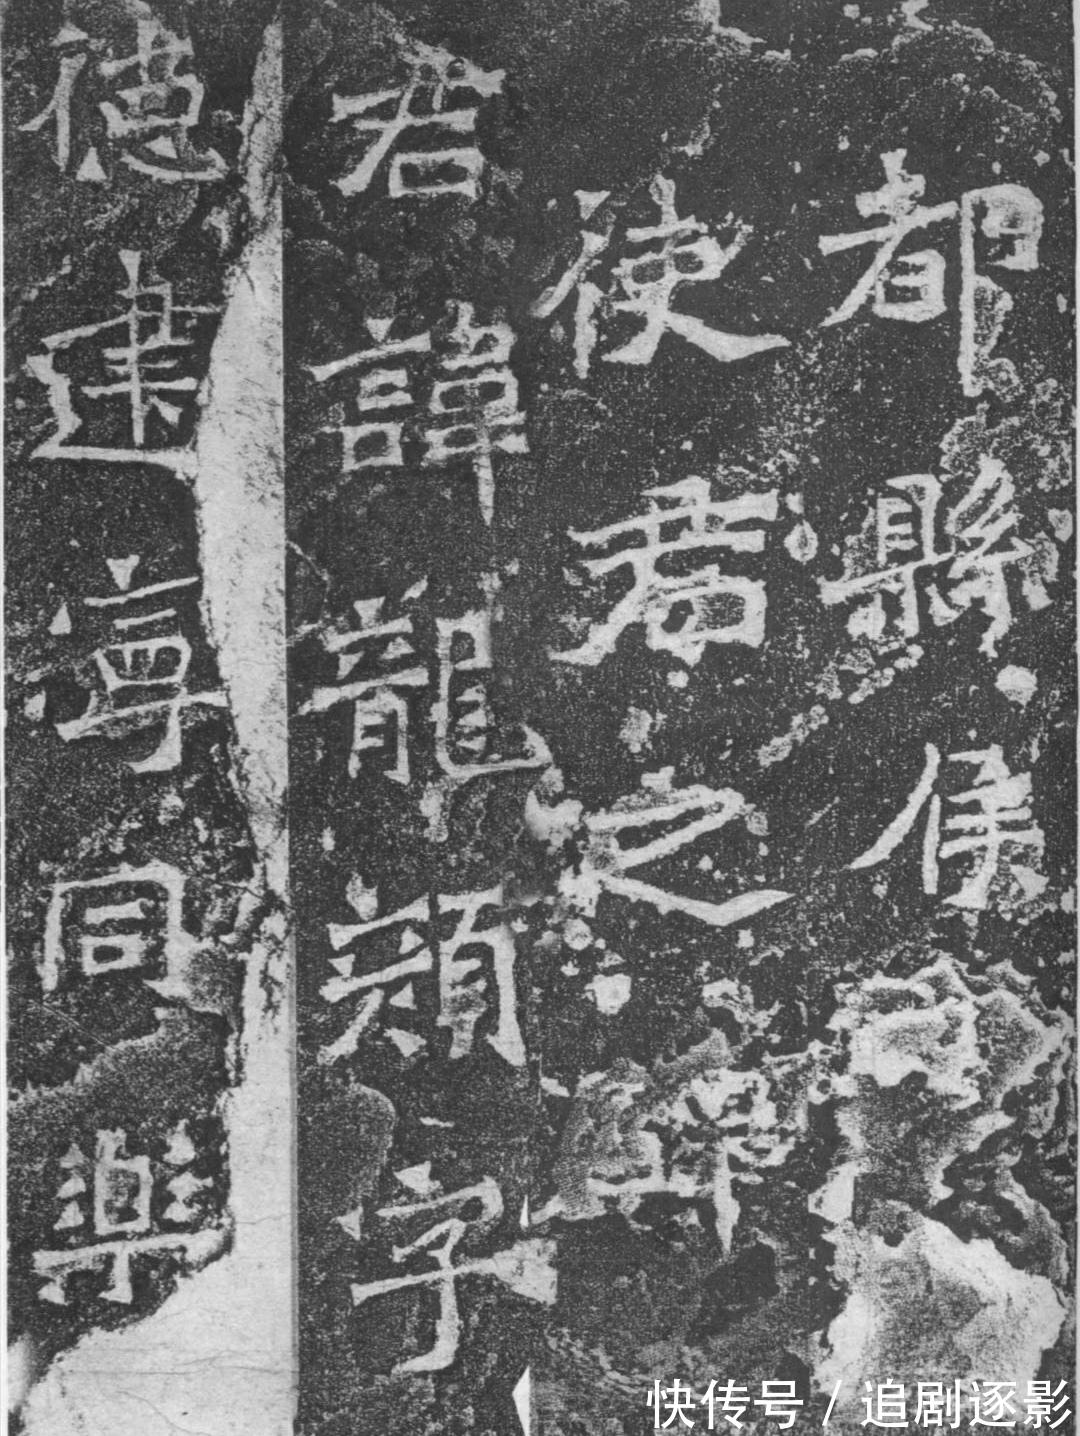 都縣侯
使君之碑
君諱龍顏字
德建寧同樂
快传号 / 追剧逐影